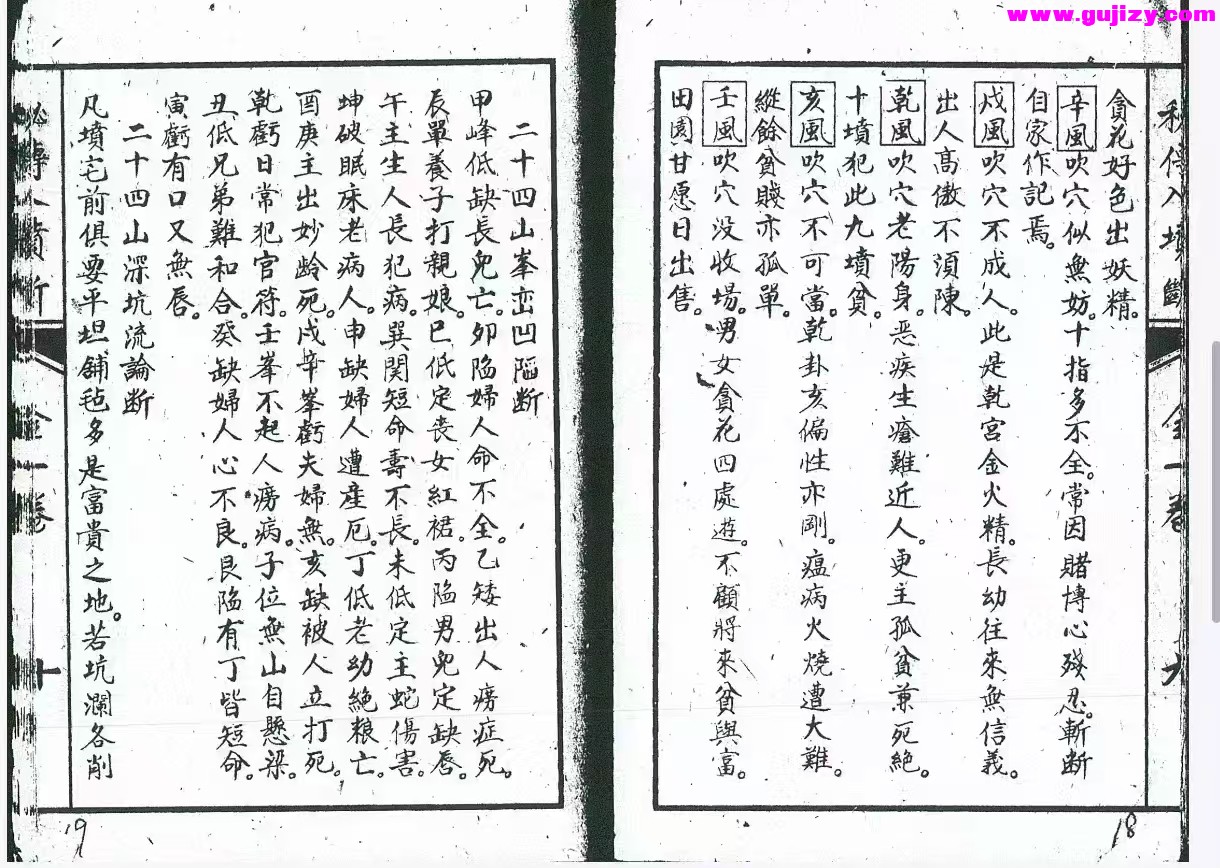 www.gujizy.com
秘傳入墳斷 全一卷 九
貪花好色出妖精。
辛風吹穴似無妨。十指多不全。常因賭博心殘忍。斬斷
自家作記焉。
戍風吹穴不成人。此是乾宮金火精。長幼往來無信義。
出人高傲不須陳。
乾風吹穴老陽身。惡疾生瘡難近人。更主孤貧兼死絕。
十墳犯此九墳貧。
亥風吹穴不可當。乾卦亥偏性亦剛。瘟病火燒遭大難。
縱餘貧賤亦孤單。
壬風吹穴没收場。男女貪花四處遊。不顧將來貧與富。
田園甘愿日出售。
18
二十四山峯峦凹陷断
甲峰低缺長兒亡。卯陷婦人命不全。乙矮出人癆症死。
辰單養子打親娘。巳低定喪女紅裙。丙陷男兒定缺唇。
午主生人長犯病。巽関短命壽不長。未低定主蛇傷害。
坤破眠床老病人。申缺婦人遭産厄。丁低老幼絶粮亡。
酉庚主出妙龄死。戍辛峯虧夫婦無。亥缺被人立打死。
乾虧日常犯官符。壬峯不起人癆病。子位無山自懸梁。
丑低兄弟難和合。癸缺婦人心不良。艮陷有丁皆短命。
寅虧有口又無唇。
二十四山深坑流論断
凡墳宅前俱要平坦舖毡多是富貴之地。若坑瀾各削
全一卷 十
19